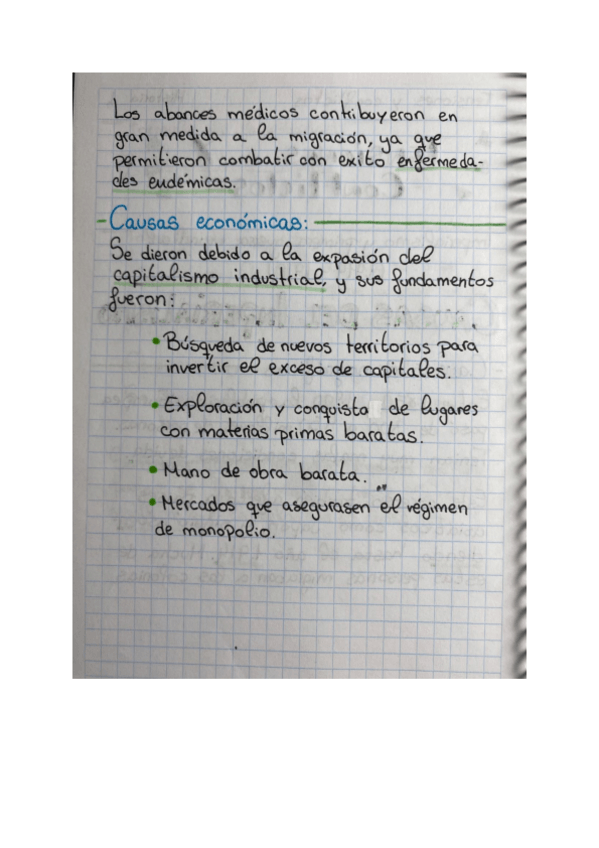 Los abances médicos contribuyeron en
gran medida a la migración, ya que
permitieron combatir con exito enfermeda-
des eudémicas.
Causas económicas:
Se dieron debido a la expasión del
capitalismo industrial, y sus fundamentos
fueron:
•Búsqueda de nuevos territorios para
invertir el exceso de capitales.
•Exploración y conquista de lugares
con materias primas baratas.
•Mano de obra barata.
•Mercados que asegurasen el régimen
de monopolio.